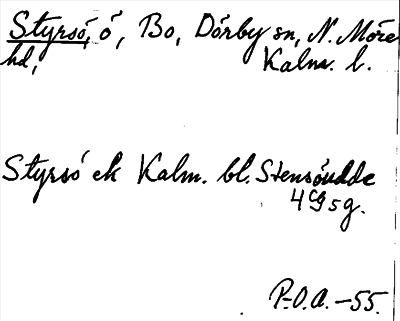 Styrsö, ö, Bo, Dörby sn, N. Möre
hd, Kalm. l.
Styrsö ek Kalm. bl. Stensöudde
4 G 5 g.
P.O.A. -55.